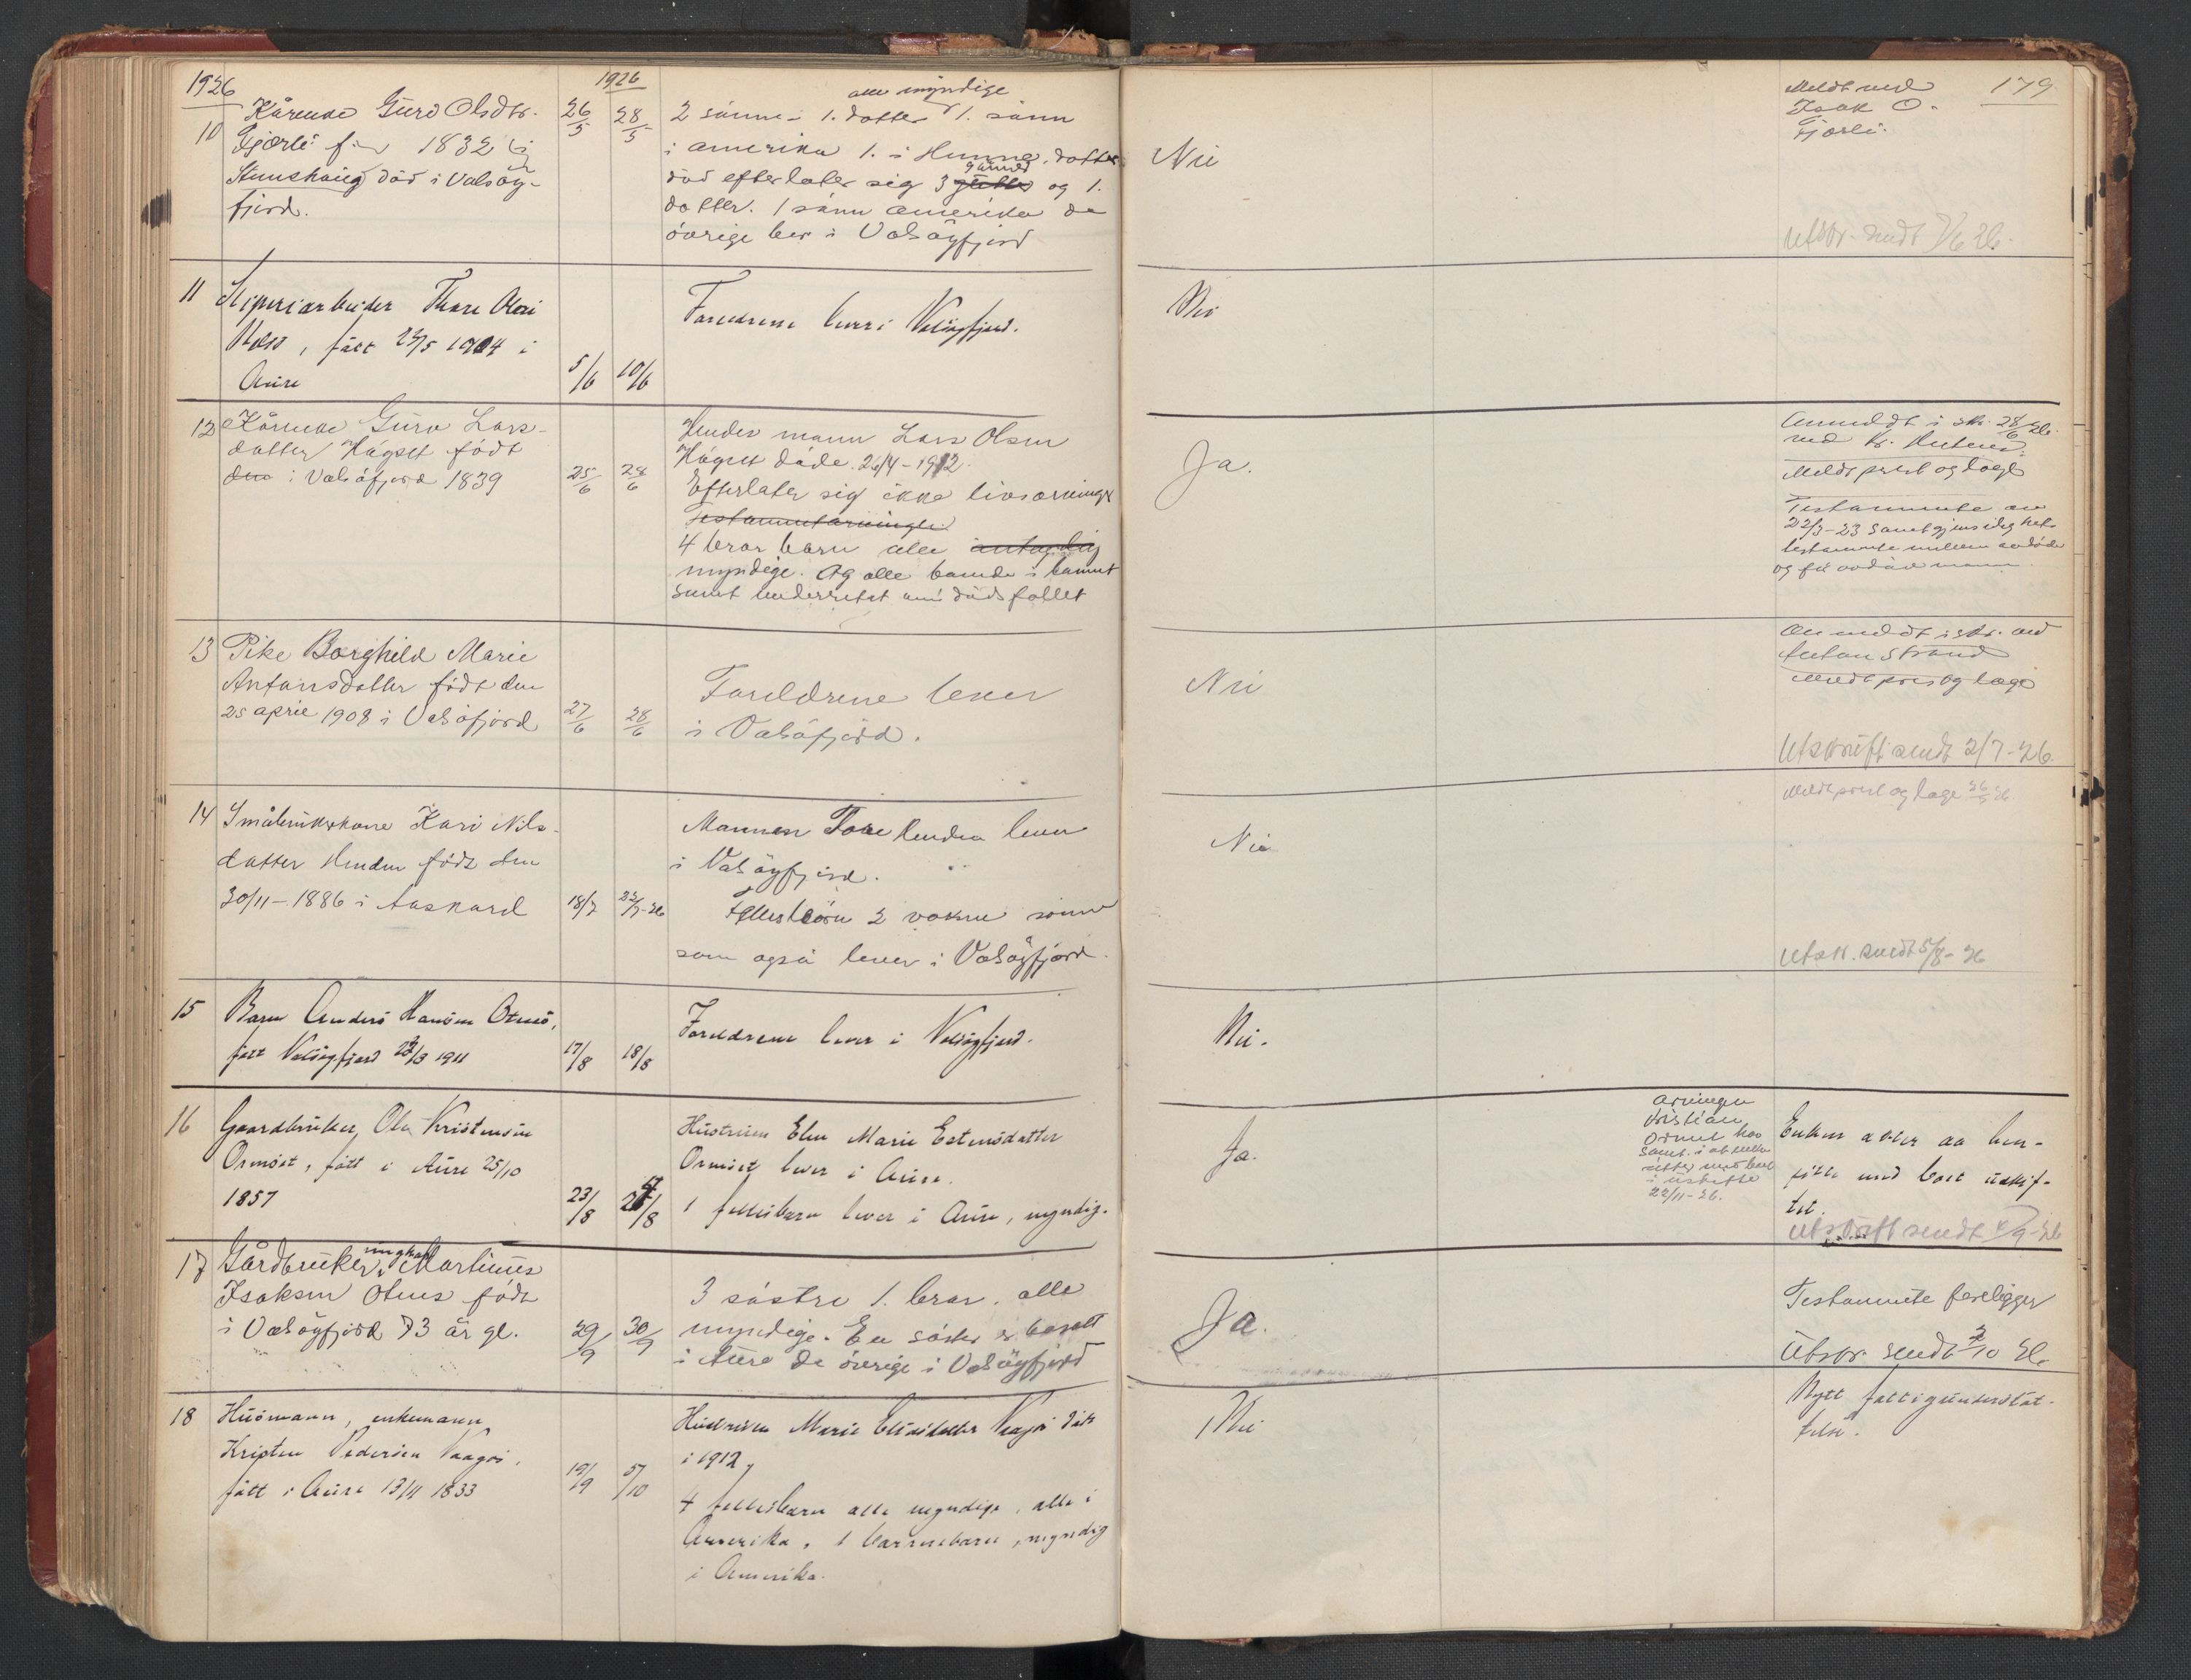 1926
1926
179
10
Kårenke Guro Olsdtr.
Gjørli f. 1832 i
død i Valsøy-
fjord.
26/5
28/5
alle myndige
2 sønner 1. datter 1. sønn
i amerika 1. i datter
død efterlater sig 3 sønner og 1.
datter. 1 sønn amerika de
øvrige bor i Valsøyfjord
Nei
Meldt ved
Isak O.
Gjørli.
Utskr. sendt 7/6 26.
11
Thore Olai
født 24/5 1904 i
Aure
5/6
10/6
Foreldrene lever i Valsøyfjord.
Nei
12
Kårenke Guro Lars-
datter Høgset født
den i Valsøfjord 1839
25/6
28/6
Hendes mann Lars Olsen
Høgset døde 26/4-1912.
Efterlater sig ikke livsarvinger
Testamentarvinger
4 bror barn alle antagelig
myndige. Og alle boende i
samt underrettet om dødsfallet
Ja.
Anmeldt i skr. 28/6 26.
ved Kr.
Meldt prest og læge
Testamente av
22/3-23 samt gjensidig
testamente mellem avdøde
og før avdøde mann.
13
Pike Borghild Marie
Antonsdatter født den
25 april 1908 i Valsøfjord
27/6
28/6
Foreldrene lever
i Valsøfjord.
Nei
Anmeldt i skr. ved
Anton Strand
Meldt prest og læge
Utskrift sendt 2/7-26.
14
Småbrukerkone Kari Nils-
datter Henden født den
30/11-1886 i Aaskard
18/7
22/7-26
Mannen Tore Henden lever
i Valsøyfjord.
Fellesbørn 2 voksne sønner
som også lever i Valsøyfjord.
Nei
Meldt prest og læge 26.
Utsk. sendt 5/8-26
15
Barn Anders Hansen Otnes,
født Valsøyfjord 22/3 1911
17/8
18/8
Foreldrene lever i Valsøyfjord.
Nei.
16
Gaardbruker Ole Kristensen
Ormset, født i Aure 25/10
1857
23/8
/8
Hustruen Elen Marie Estensdatter
Ormset lever i Aure.
1 fellesbarn lever i Aure, myndig.
Ja.
arvingen
Kristian
Ormset har
samt. i at enken
sitter med boet
i uskifte
22/11-26.
Enken akter aa hen-
sitte med boet uskif-
tet.
Utskrift sendt /9-26
17
Gårdbruker, ungkar Martinus
Isaksen Otnes født
i Valsøyfjord 73 år gl.
29/9
30/9
3 søstre 1. bror. alle
myndige. En søster er bosatt
i Aure de øvrige i Valsøyfjord
Ja.
Testamente foreligger
Utskr. sendt /10 26.
18
Husmann, enkemann
Kristen Pedersen Vaagos,
født i Aure 13/11 1833
19/9
5/10
Hustruen Marie død
i 1912,
4 fellesbarn alle myndige, alle i
Amerika. 1 barnebarn, myndig
i Amerika.
Nei
Nytt fattigunderstøt-
telse.